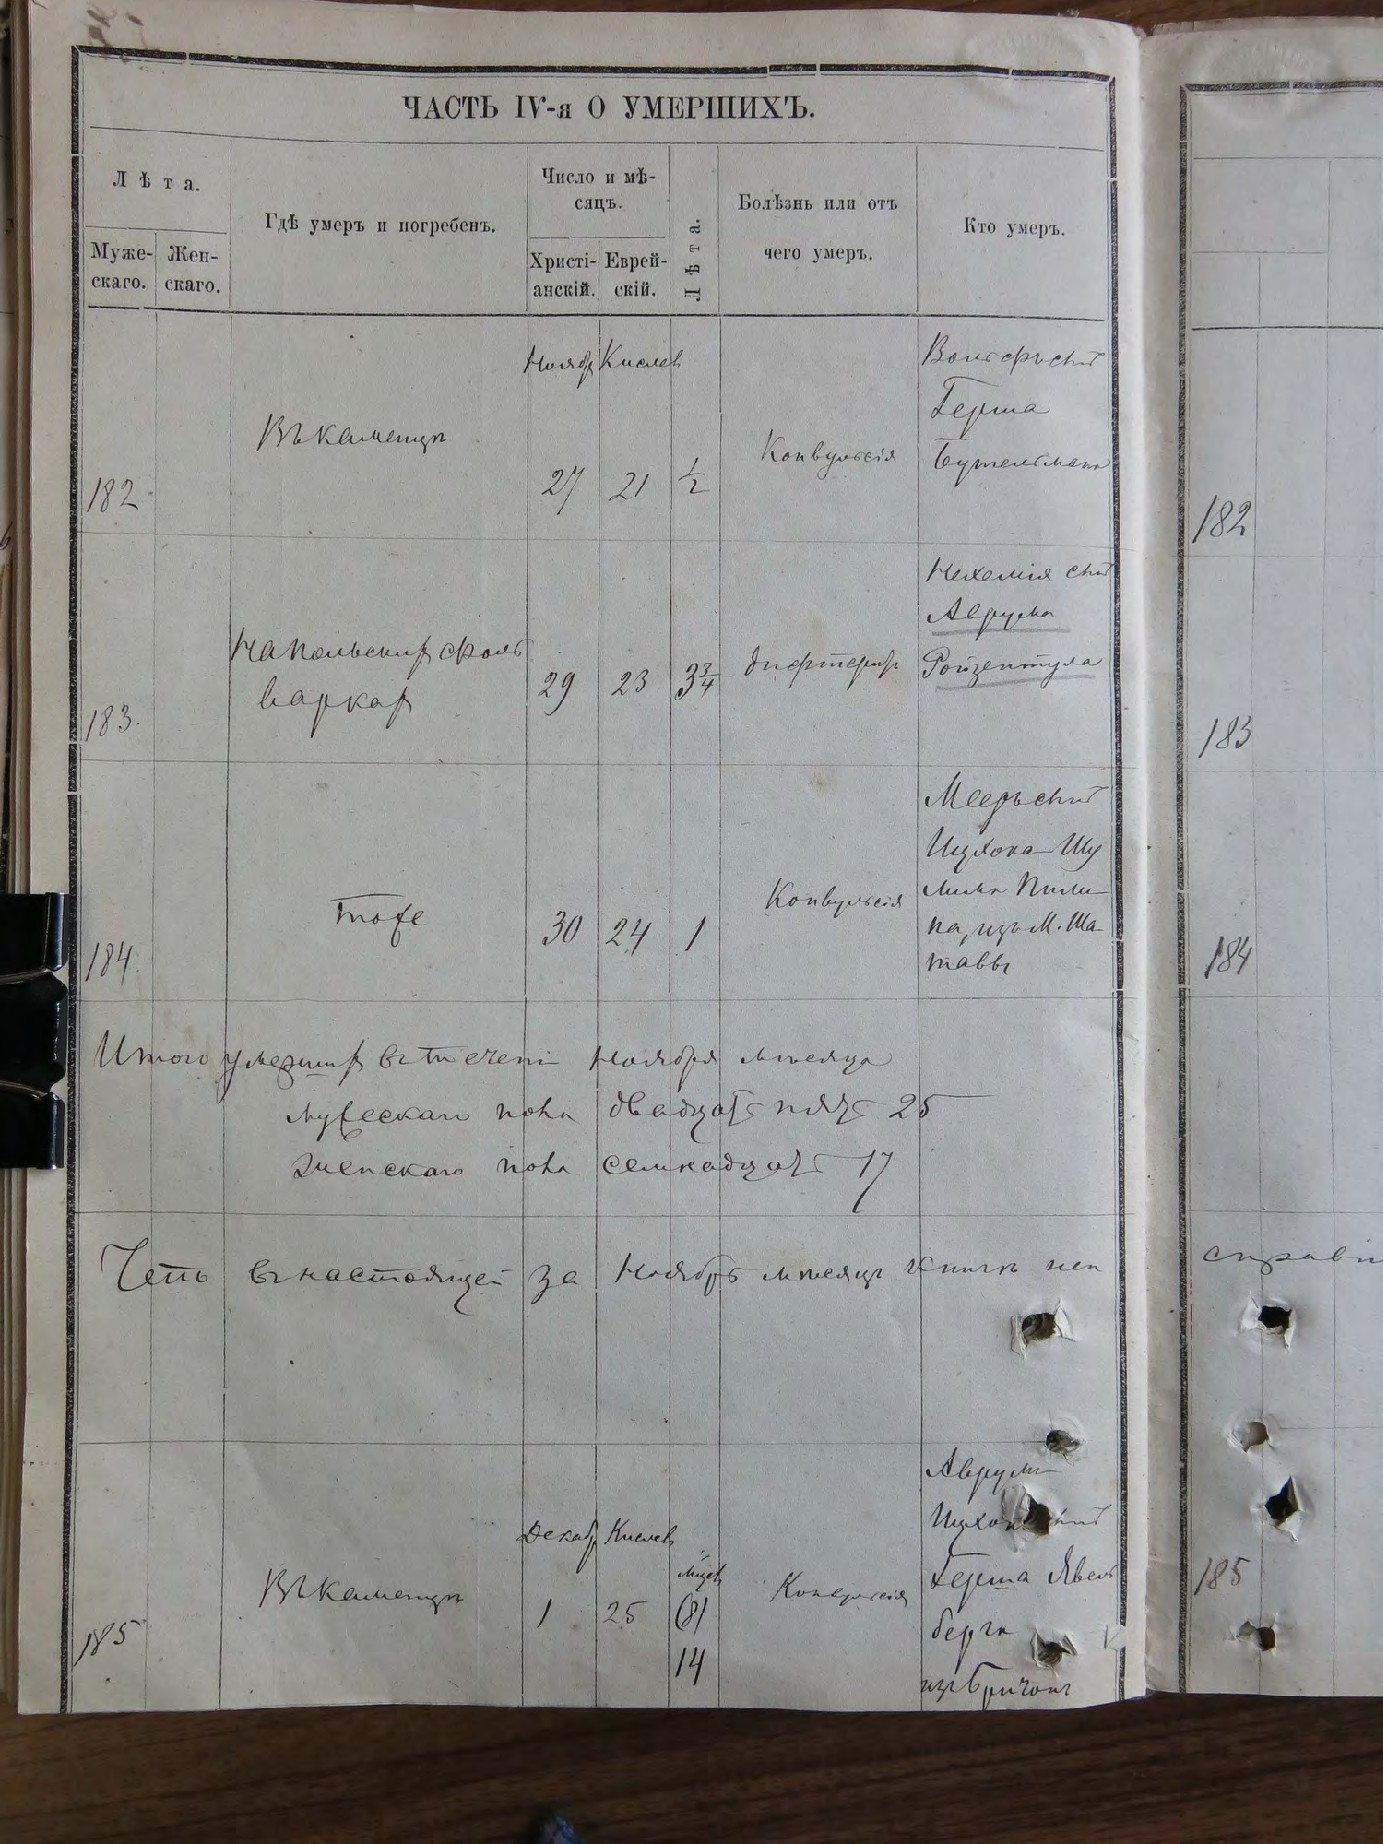 ЧАСТЬ IV-я О УМЕРШИХЪ.
Лѣта.
Муже-
скаго.
Жен-
скаго.
Гдѣ умеръ и погребенъ.
Число и мѣ-
сяцъ.
Христі-
анскій.
Еврей-
скій.
Лѣта.
Болѣзнь или отъ
чего умеръ.
Кто умеръ.
182
Въ Каменцѣ
Ноябр Кислев
27 21 1/2
Конвульсія
Вольфъ сынъ
Герша
Бутельмана
183.
На Польских фоль
варках
29 23 3 3/4
дифтерит
Нехемія сынъ
Аврума
Ройзентула
184.
тоже
30 24 1
Конвульсія
Мееръ сынъ
Ицхока Шу
лима
на, изъ М. Ша-
тавы
Итого умерших въ течени Ноября мѣсяца
мужескаго пола двадцать пять 25
женскаго пола семнадцать 17
въ настоящей за Ноябрь мѣсяцъ Книгѣ
185
Въ Каменцѣ
Декабр Кислев
1 25
мцев
(8)
14
Конвульсія
Аврумъ
сынъ
Герша Явель
берга
изъ Бричонъ
182
183
184
185